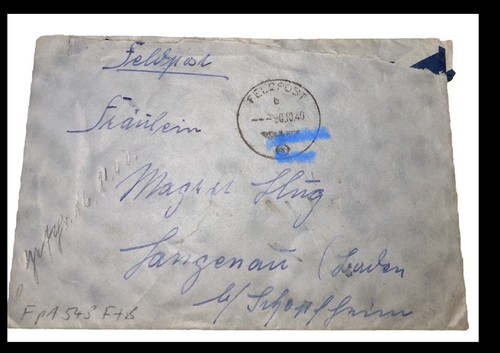 Feldpost
FELDPOST
b
Fräulein
Hug
Langenau (Baden
b/ Schopfheim
FpA 543 F+B